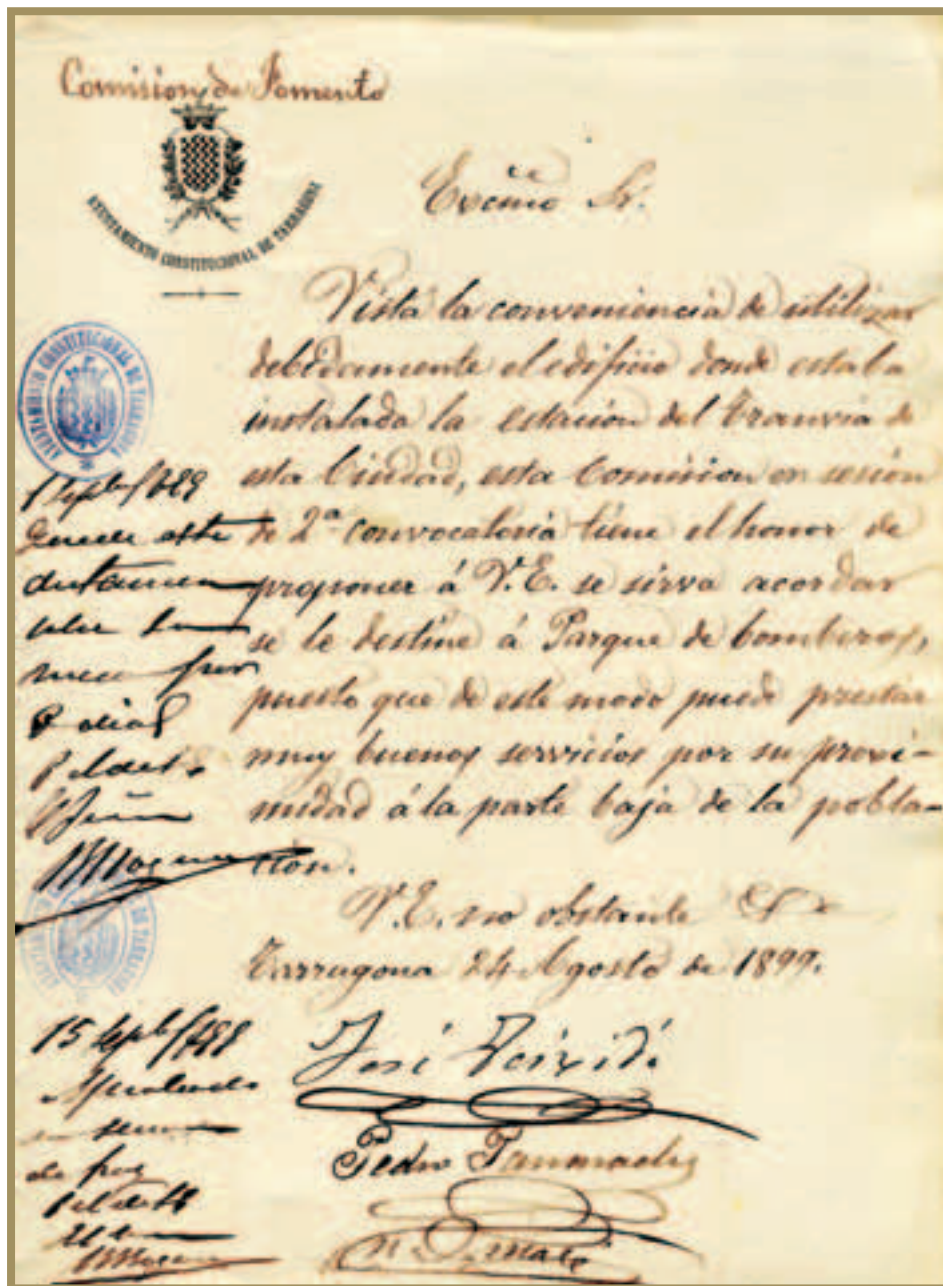 Comision de Fomento
AYUNTAMIENTO CONSTITUCIONAL DE TARRAGONA
Excmo Sr.
Vista la conveniencia de utilizar
debidamente el edificio donde estaba
instalada la estacion del tranvia de
esta Ciudad, esta Comision en sesión
de 2ª convocatoria tiene el honor de
proponer á V.E. se sirva acordar
se le destine á Parque de bomberos,
puesto que de este modo puede prestar
muy buenos servicios por su proxi-
midad á la parte baja de la pobla-
cion.
V.E. no obstante
Tarragona 24 Agosto de 1899.
AYUNTAMIENTO CONSTITUCIONAL DE TARRAGONA
Quede este
dictamen
sobre la
mesa por
8 dias
15
José Teixidó
Pedro